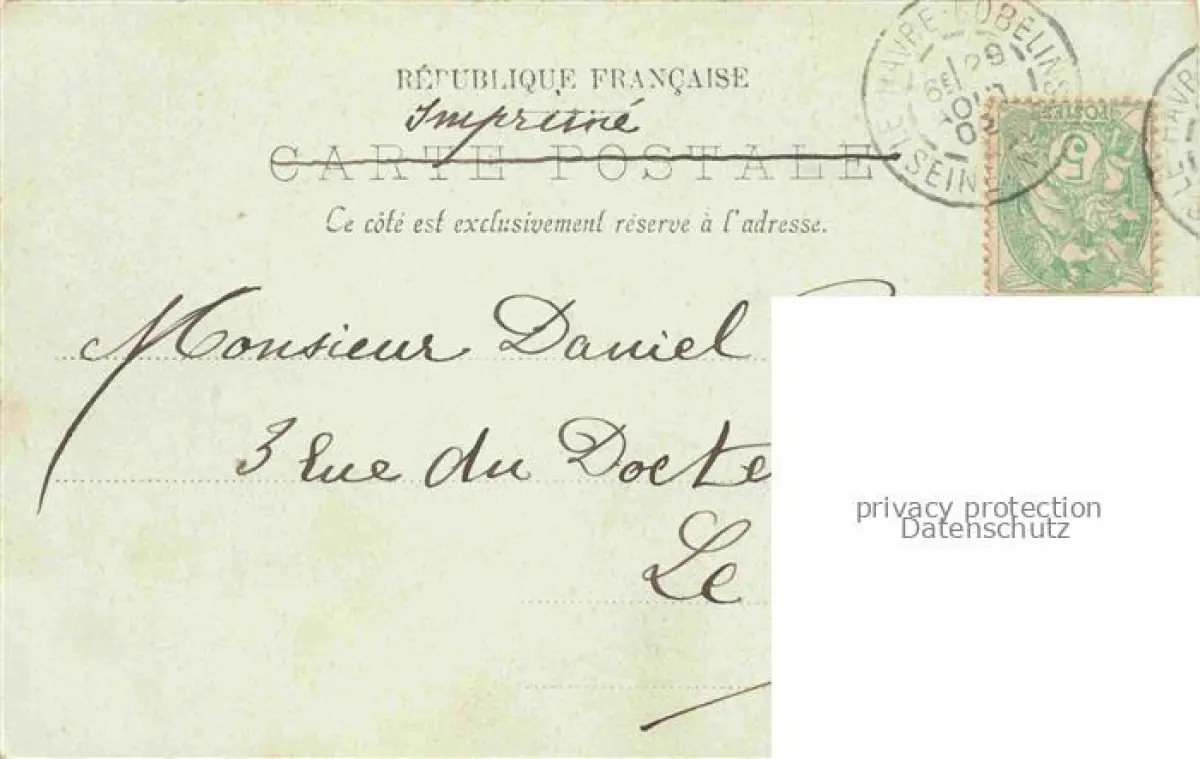 RÉPUBLIQUE FRANÇAISE
Imprimé
CARTE POSTALE
Ce côté est exclusivement réservé à l'adresse.
LE HAVRE-GOBELINS
29
AOUT
03
SEINE
POSTES
5
LE HAVRE
Monsieur Daniel
3 Rue du Docte
Le
privacy protection
Datenschutz